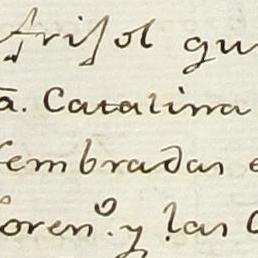 frisol qu
ã. Catalina
sembradas e
loren.º y las C